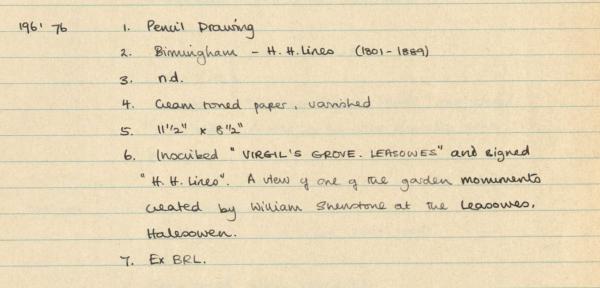 196' 76 1. Pencil Drawing
2. Birmingham - H.H. Lines (1801-1889)
3. n.d.
4. Cream toned paper, varnished
5. 11½" x 8½"
6. Inscribed "VIRGIL'S GROVE. LEASOWES" and signed
"H.H. Lines". A view of one of the garden monuments
created by William Shenstone at the Leasowes,
Halesowen.
7. Ex BRL.